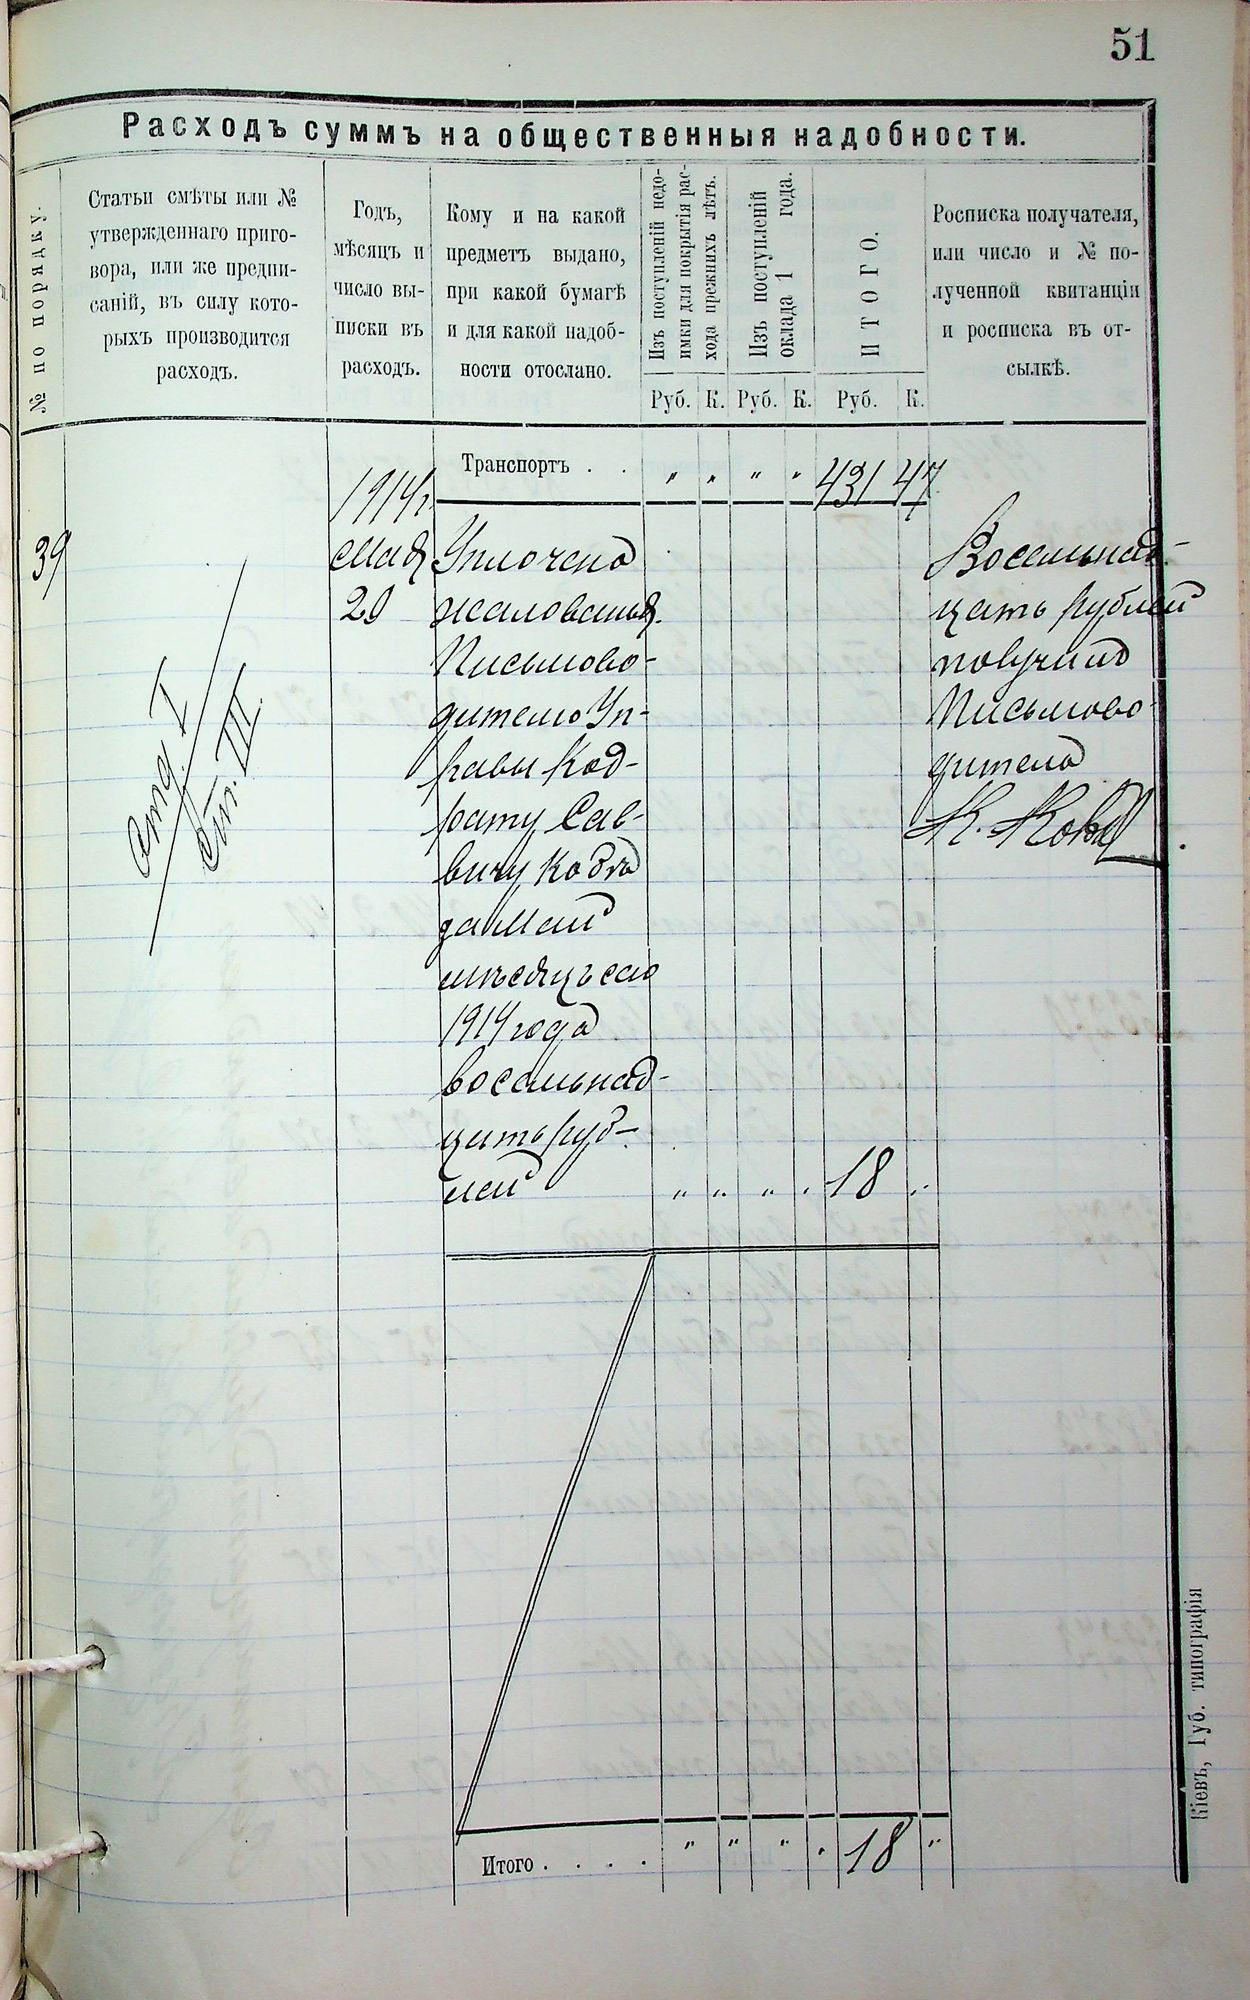 51
Расходъ суммъ на общественныя надобности.
№ по порядку.
Статьи смѣты или №
утвержденнаго приго-
вора, или же предпи-
саній, въ силу кото-
рыхъ производится
расходъ.
Годъ,
мѣсяцъ и
число вы-
писки въ
расходъ.
Кому и на какой
предметъ выдано,
при какой бумагѣ
и для какой надоб-
ности отослано.
Изъ поступленій недо-
имки для покрытія рас-
хода прежнихъ лѣтъ.
Изъ поступленій
оклада 1 года.
ИТОГО.
Росписка получателя,
или число и № по-
лученной квитанціи
и росписка въ от-
сылкѣ.
Руб. К. Руб. К. Руб. К.
Транспортъ . . " " " " 431 47
1914 г.
39
Мая
20
Отд. I
Ст. III.
Уплочено
жалованья
Письмово-
дителю Уп-
равы Код-
рату Сав-
вичу
за Май
мѣсяцъ сего
1914 года
восемьнад-
цать руб-
лей " " " " 18 "
Восемьнад-
цать рублей
получилъ
Письмово-
дитель
Итого . . . . " " " " 18 "
Кіевъ, Губ. типографія